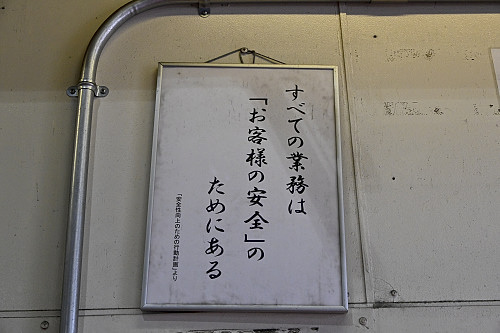 すべての業務は
「お客様の安全」の
ためにある
「安全性向上のための行動計画」より